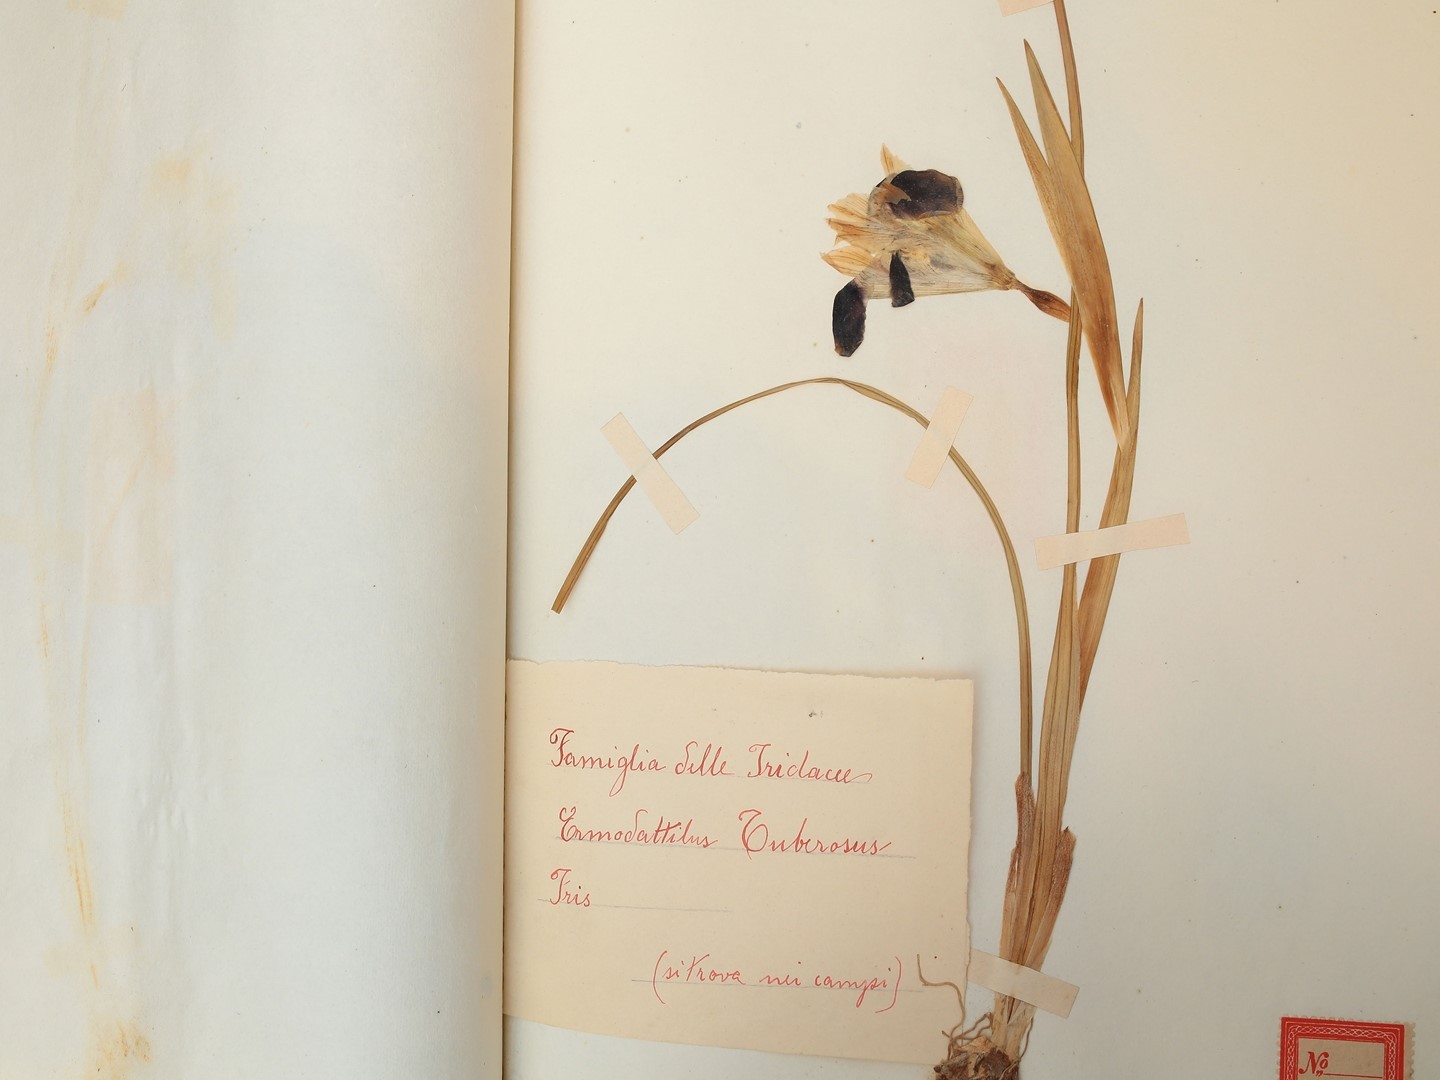 Famiglia delle Iridacee
Ermodattilus Tuberosus
Iris
(si trova nei campi)
No